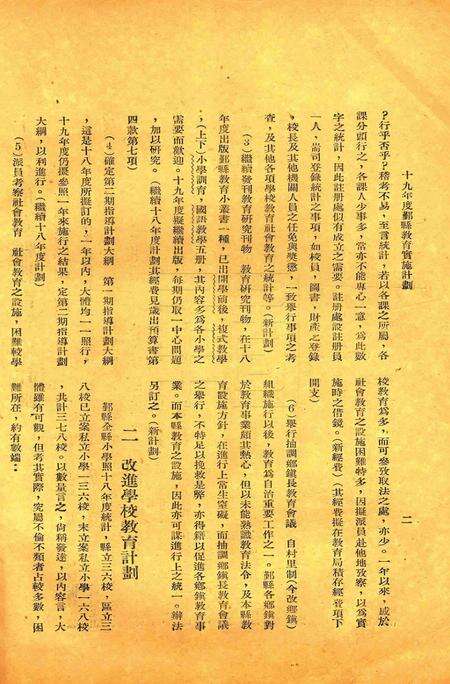 十九年度鄞縣教育實施計劃
二
？行乎否乎？稽考不易，至言統計，若以各課之所屬，各
課分頭行之，各課人少事多，當亦不能專心一意，爲此數
字之統計，因此註册處似有成立之需要。註册處設註册員
一人，耑司登錄統計之事項，如校員，圖書，財產之登錄
，校長及其他機關人員之任免與獎懲，一致舉行事項之考
查，及其他各項學校教育社會教育之統計等。（新計劃）
（3）繼續發刊教育研究刊物　教育研究刊物，在十八
年度出版鄞縣教育小叢書一種，已出開學前後，複式教學
，（上下）小學訓育，國語教學五册，其內容多爲各小學之
需要而歡迎。十九年度擬繼續出版，每期仍取一中心問題
，加以研究。（繼續十八年度計劃其經費見歲出預算書第
四款第七項）
（4）確定第二期指導計劃大綱　第一期指導計劃大綱
，這是十八年度所擬訂的，一年以內，大體均一一照行，
十九年度仍擬參照一年來施行之結果，定第二期指導計劃
大綱，以利進行。（繼續十八年度計劃）
（5）派員考察社會教育　社會教育之設施，困難較學
校教育爲多，而可參攷取法之處，亦少。一年以來，感於
社會教育之設施困難特多，因擬派員赴他地攷察，以爲實
施時之借鏡。（新經費）（其經費擬在教育局積存經費項下
開支）
（6）舉行抽調鄉鎭長教育會議　自村里制（今改鄉鎭）
組織施行以後，教育爲自治重要工作之一。鄞縣各鄉鎭對
於教育事業頗其熱心，但以未能熟識教育法令，及本縣教
育設施方針，在進行上常生窒礙，而抽調鄉鎭長教育會議
之舉行，不特足以挽救是弊，亦得藉以促進各鄉鎭教育事
業。而本縣教育之設施，因此亦可謀進行上之統一。辦法
另訂之。（新計劃）
二　改進學校教育計劃
鄞縣全縣小學照十八年度統計，縣立三六校，區立三
八校已立案私立小學一三六校，未立案私立小學一六八校
，共計三七八校。以數量言之，尙稱發達，以內容言，大
體雖有可觀，但考其實際，窳屬不倫不類者占較多數，困
難所在，約有數端：